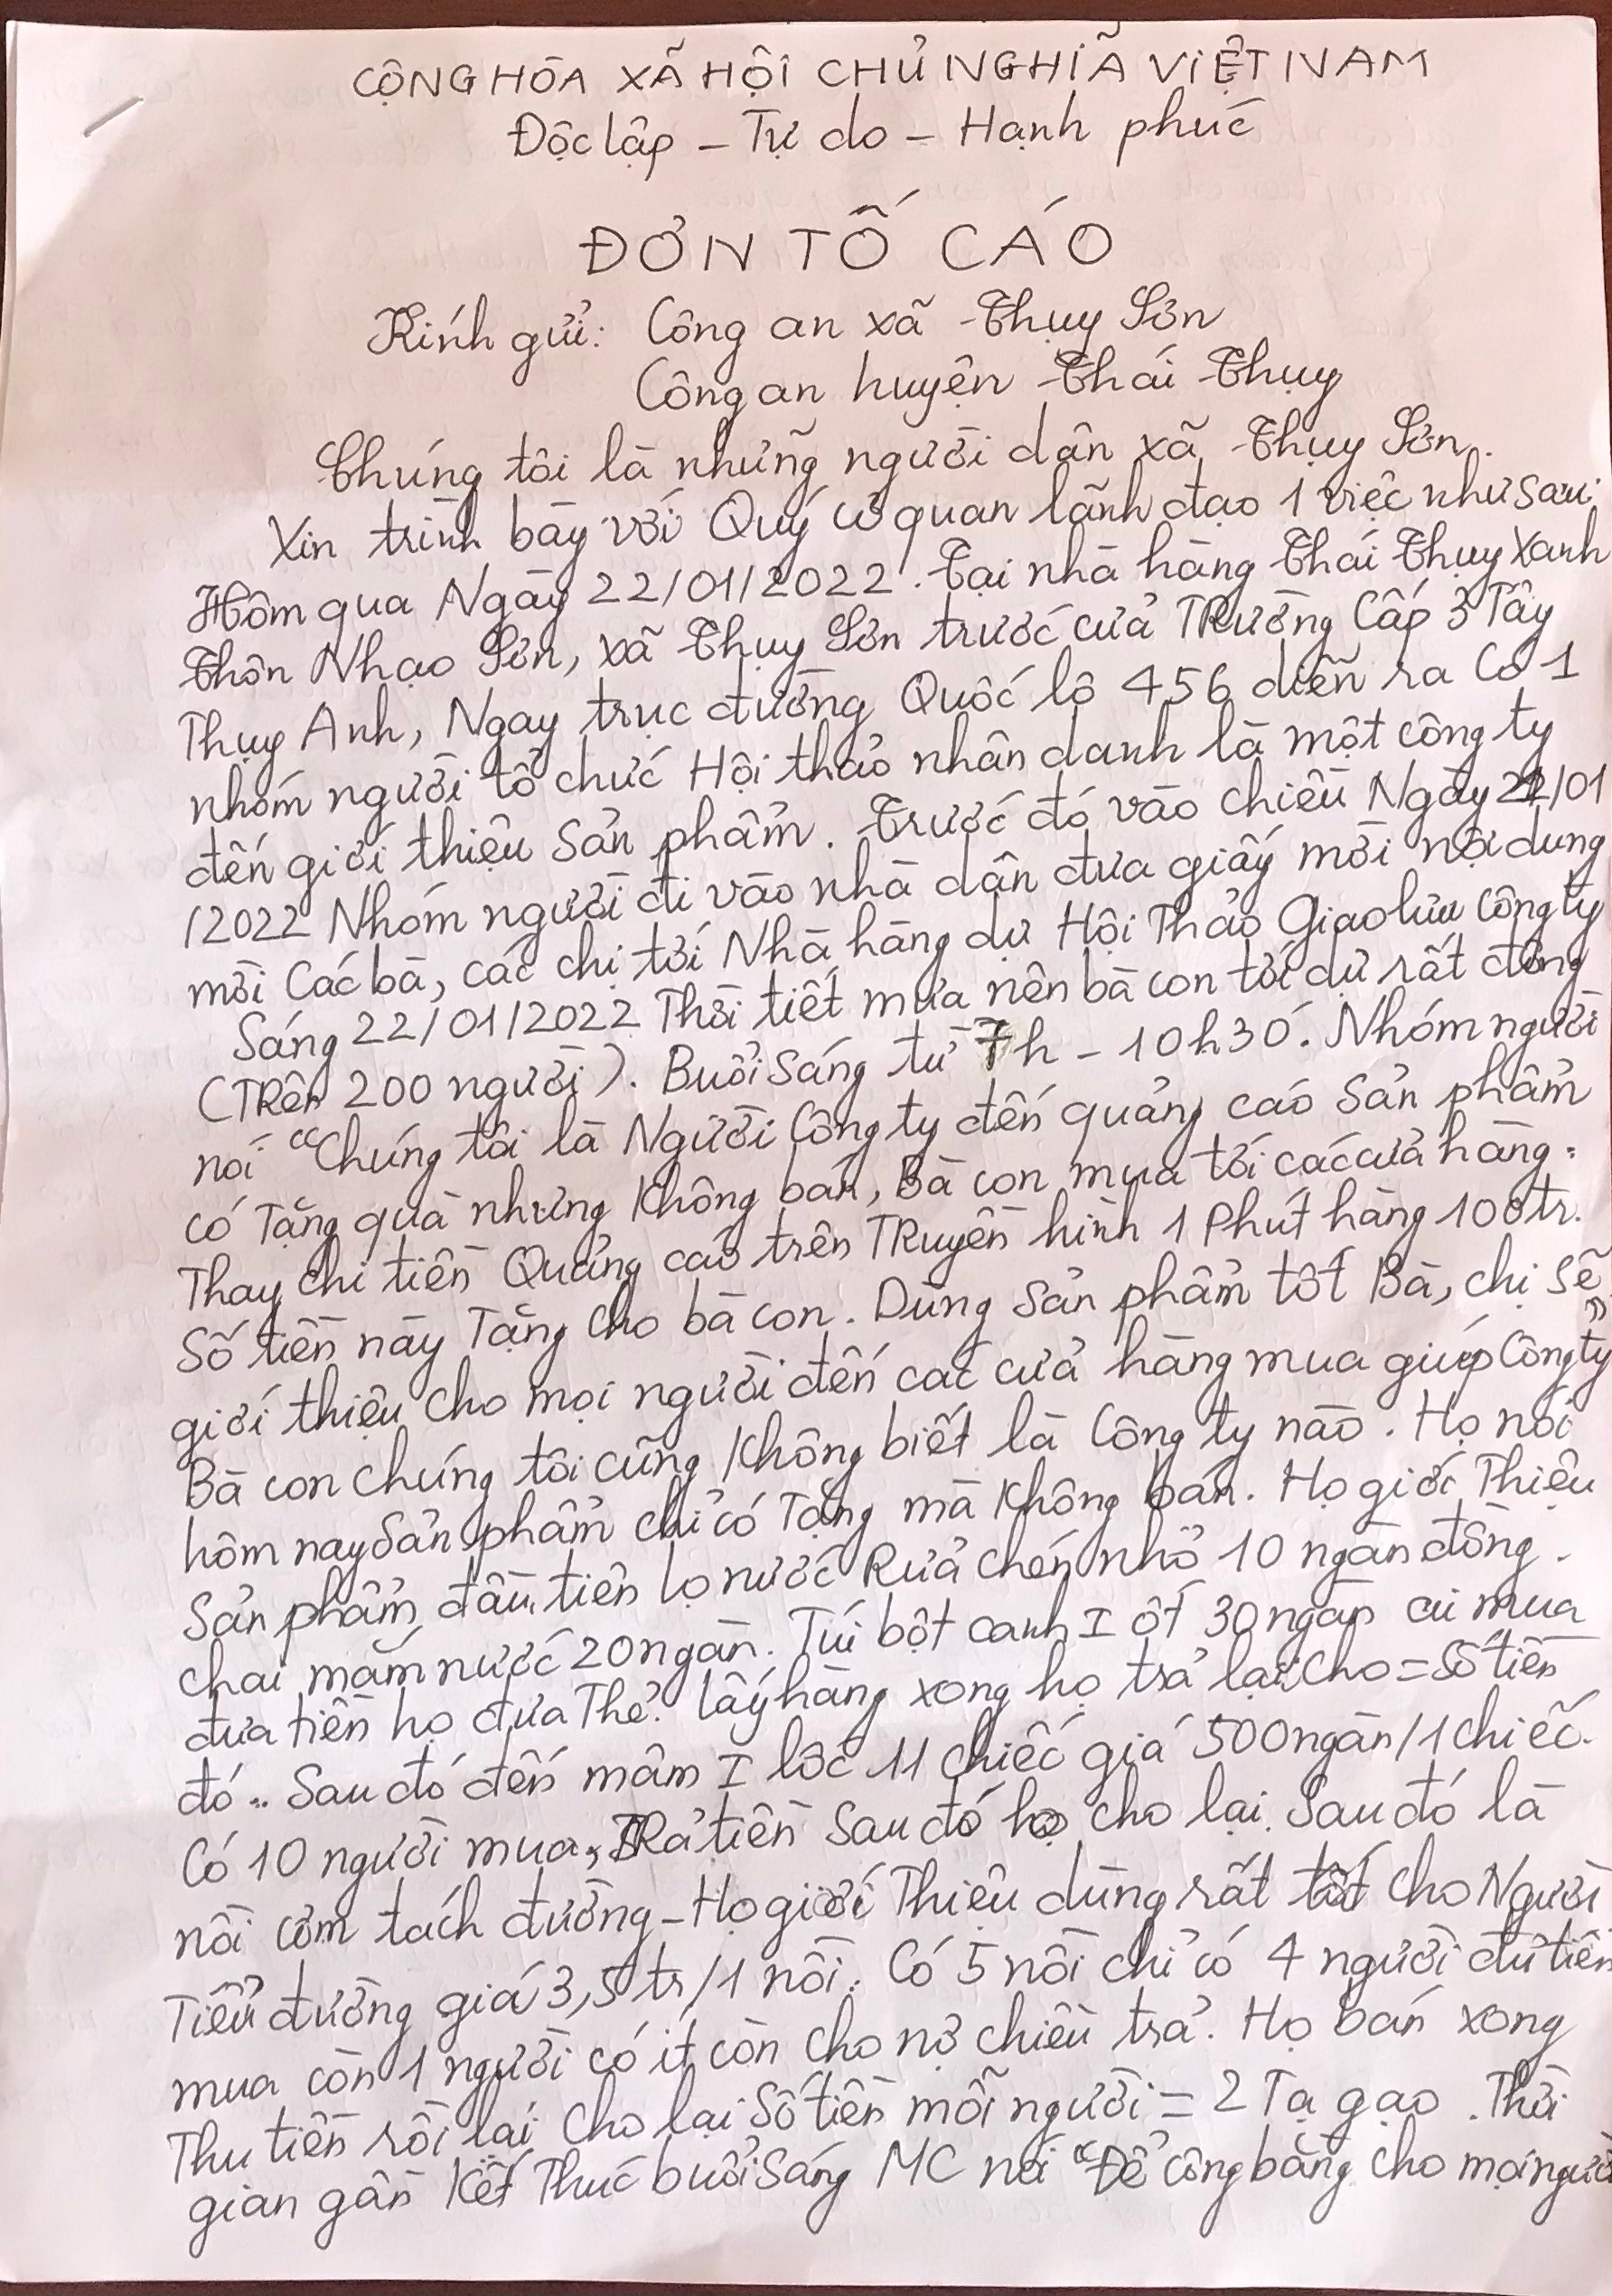 CỘNG HÒA XÃ HỘI CHỦ NGHĨA VIỆT NAM
Độc lập - Tự do - Hạnh phúc
ĐƠN TỐ CÁO
Kính gửi: Công an xã Thụy Sơn
Công an huyện Thái Thụy
Chúng tôi là những người dân xã Thụy Sơn.
Xin trình bày với Quý cơ quan lãnh đạo 1 việc như sau:
Hôm qua Ngày 22/01/2022. Tại nhà hàng Thái Thụy Xanh
Thôn Nhạo Sơn, xã Thụy Sơn trước cửa TRường Cấp 3 Tây
Thụy Anh, Ngay trục đường Quốc lộ 456 diễn ra Có 1
nhóm người tổ chức Hội thảo nhân danh là một công ty
đến giới thiệu Sản phẩm. Trước đó vào chiều Ngày 21/01
/2022 Nhóm người đi vào nhà dân đưa giấy mời nội dung
mời Các bà, các chị tới Nhà hàng dự Hội Thảo Giao lưu Công ty
Sáng 22/01/2022 Thời tiết mưa nên bà con tới dự rất đông
(TRên 200 người). Buổi Sáng từ 7h - 10h30'. Nhóm người
nói "Chúng tôi là Người Công ty đến quảng cáo Sản phẩm
có Tặng quà nhưng Không bán, Bà con mua tới các cửa hàng.
Thay chi tiền Quảng cáo trên TRuyền hình 1 Phút hàng 100tr.
Số tiền này Tặng Cho bà con. Dùng Sản phẩm tốt Bà, chị sẽ
giới thiệu Cho mọi người đến các cửa hàng mua giúp Công ty"
Bà con chúng tôi cũng Không biết là Công ty nào. Họ nói
hôm nay Sản phẩm chỉ có Tặng mà Không bán. Họ giới Thiệu
Sản phẩm đầu tiên lọ nước Rửa Chén nhỏ 10 ngàn đồng.
chai mắm nước 20 ngàn. Túi bột canh I ốt 30 ngàn ai mua
đưa tiền họ đưa Thẻ. Lấy hàng xong họ trả lại Cho = Số tiền
đó.. Sau đó đến mâm I lốc 11 chiếc giá 500 ngàn/1 chiếc.
Có 10 người mua, TRả tiền Sau đó họ cho lại. Sau đó là
nồi cơm tách đường - Họ giới Thiệu dùng rất tốt Cho Người
Tiểu đường giá 3,5 tr/1 nồi. Có 5 nồi chỉ có 4 người đủ tiền
mua còn 1 người có ít còn Cho nợ chiều trả. Họ bán xong
Thu tiền rồi lại Cho lại Số tiền mỗi người = 2 Tạ gạo. Thời
gian gần Kết Thúc buổi Sáng MC nói "Để công bằng Cho mọi người